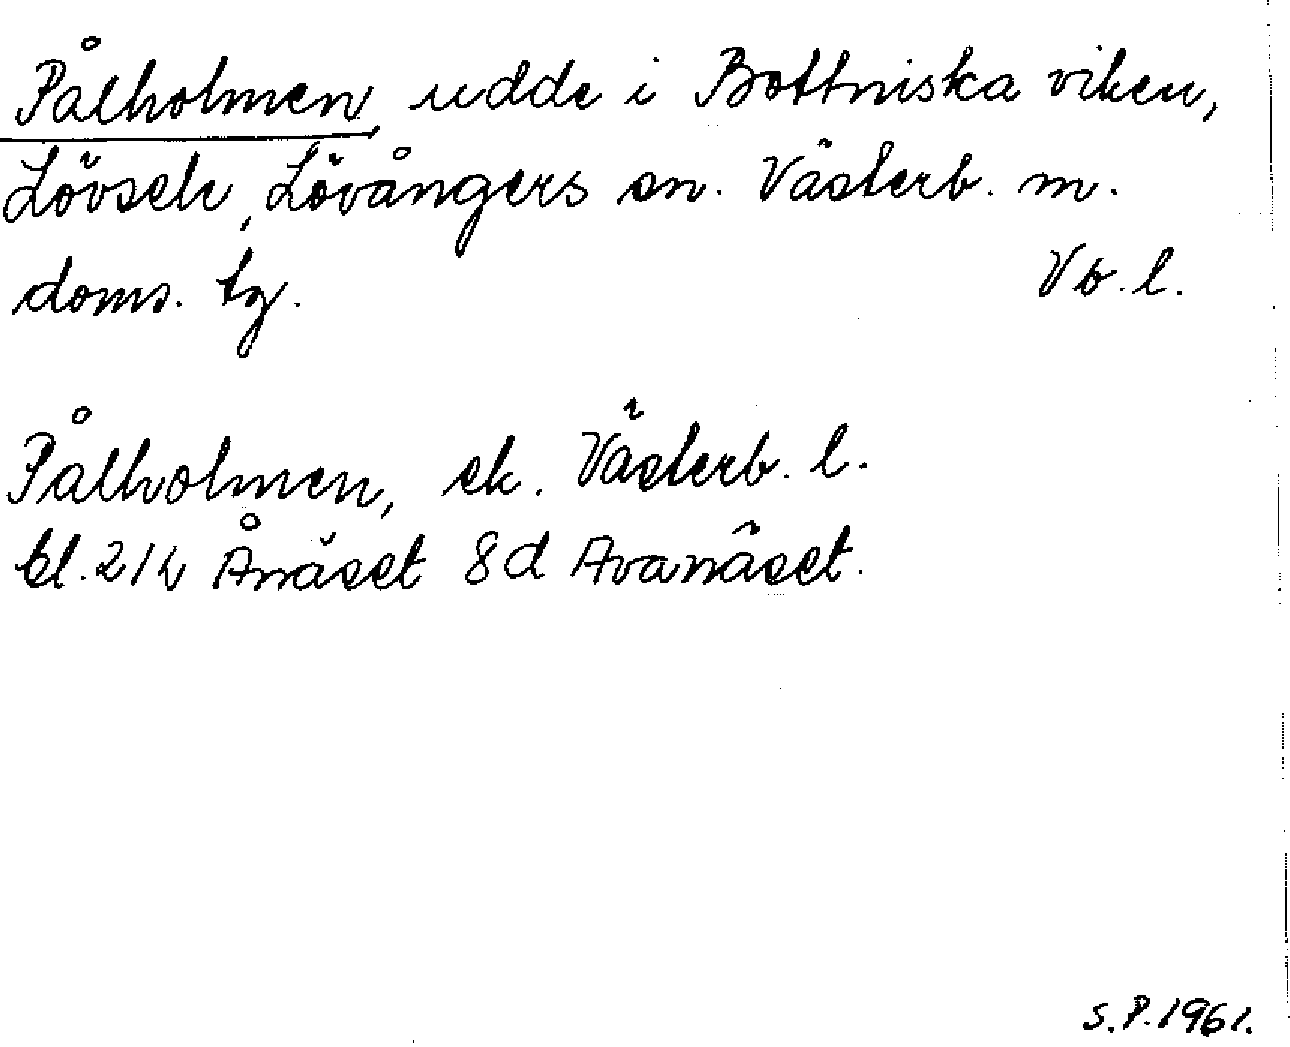 Pålholmen, udde i Bottniska viken,
Lövsele, Lövångers sn. Västerb. m.
doms. tg. Vb. l.
Pålholmen, ek. Västerb. l.
bl. 21h Ånäset 8d Avanäset.
S.P. 1961.